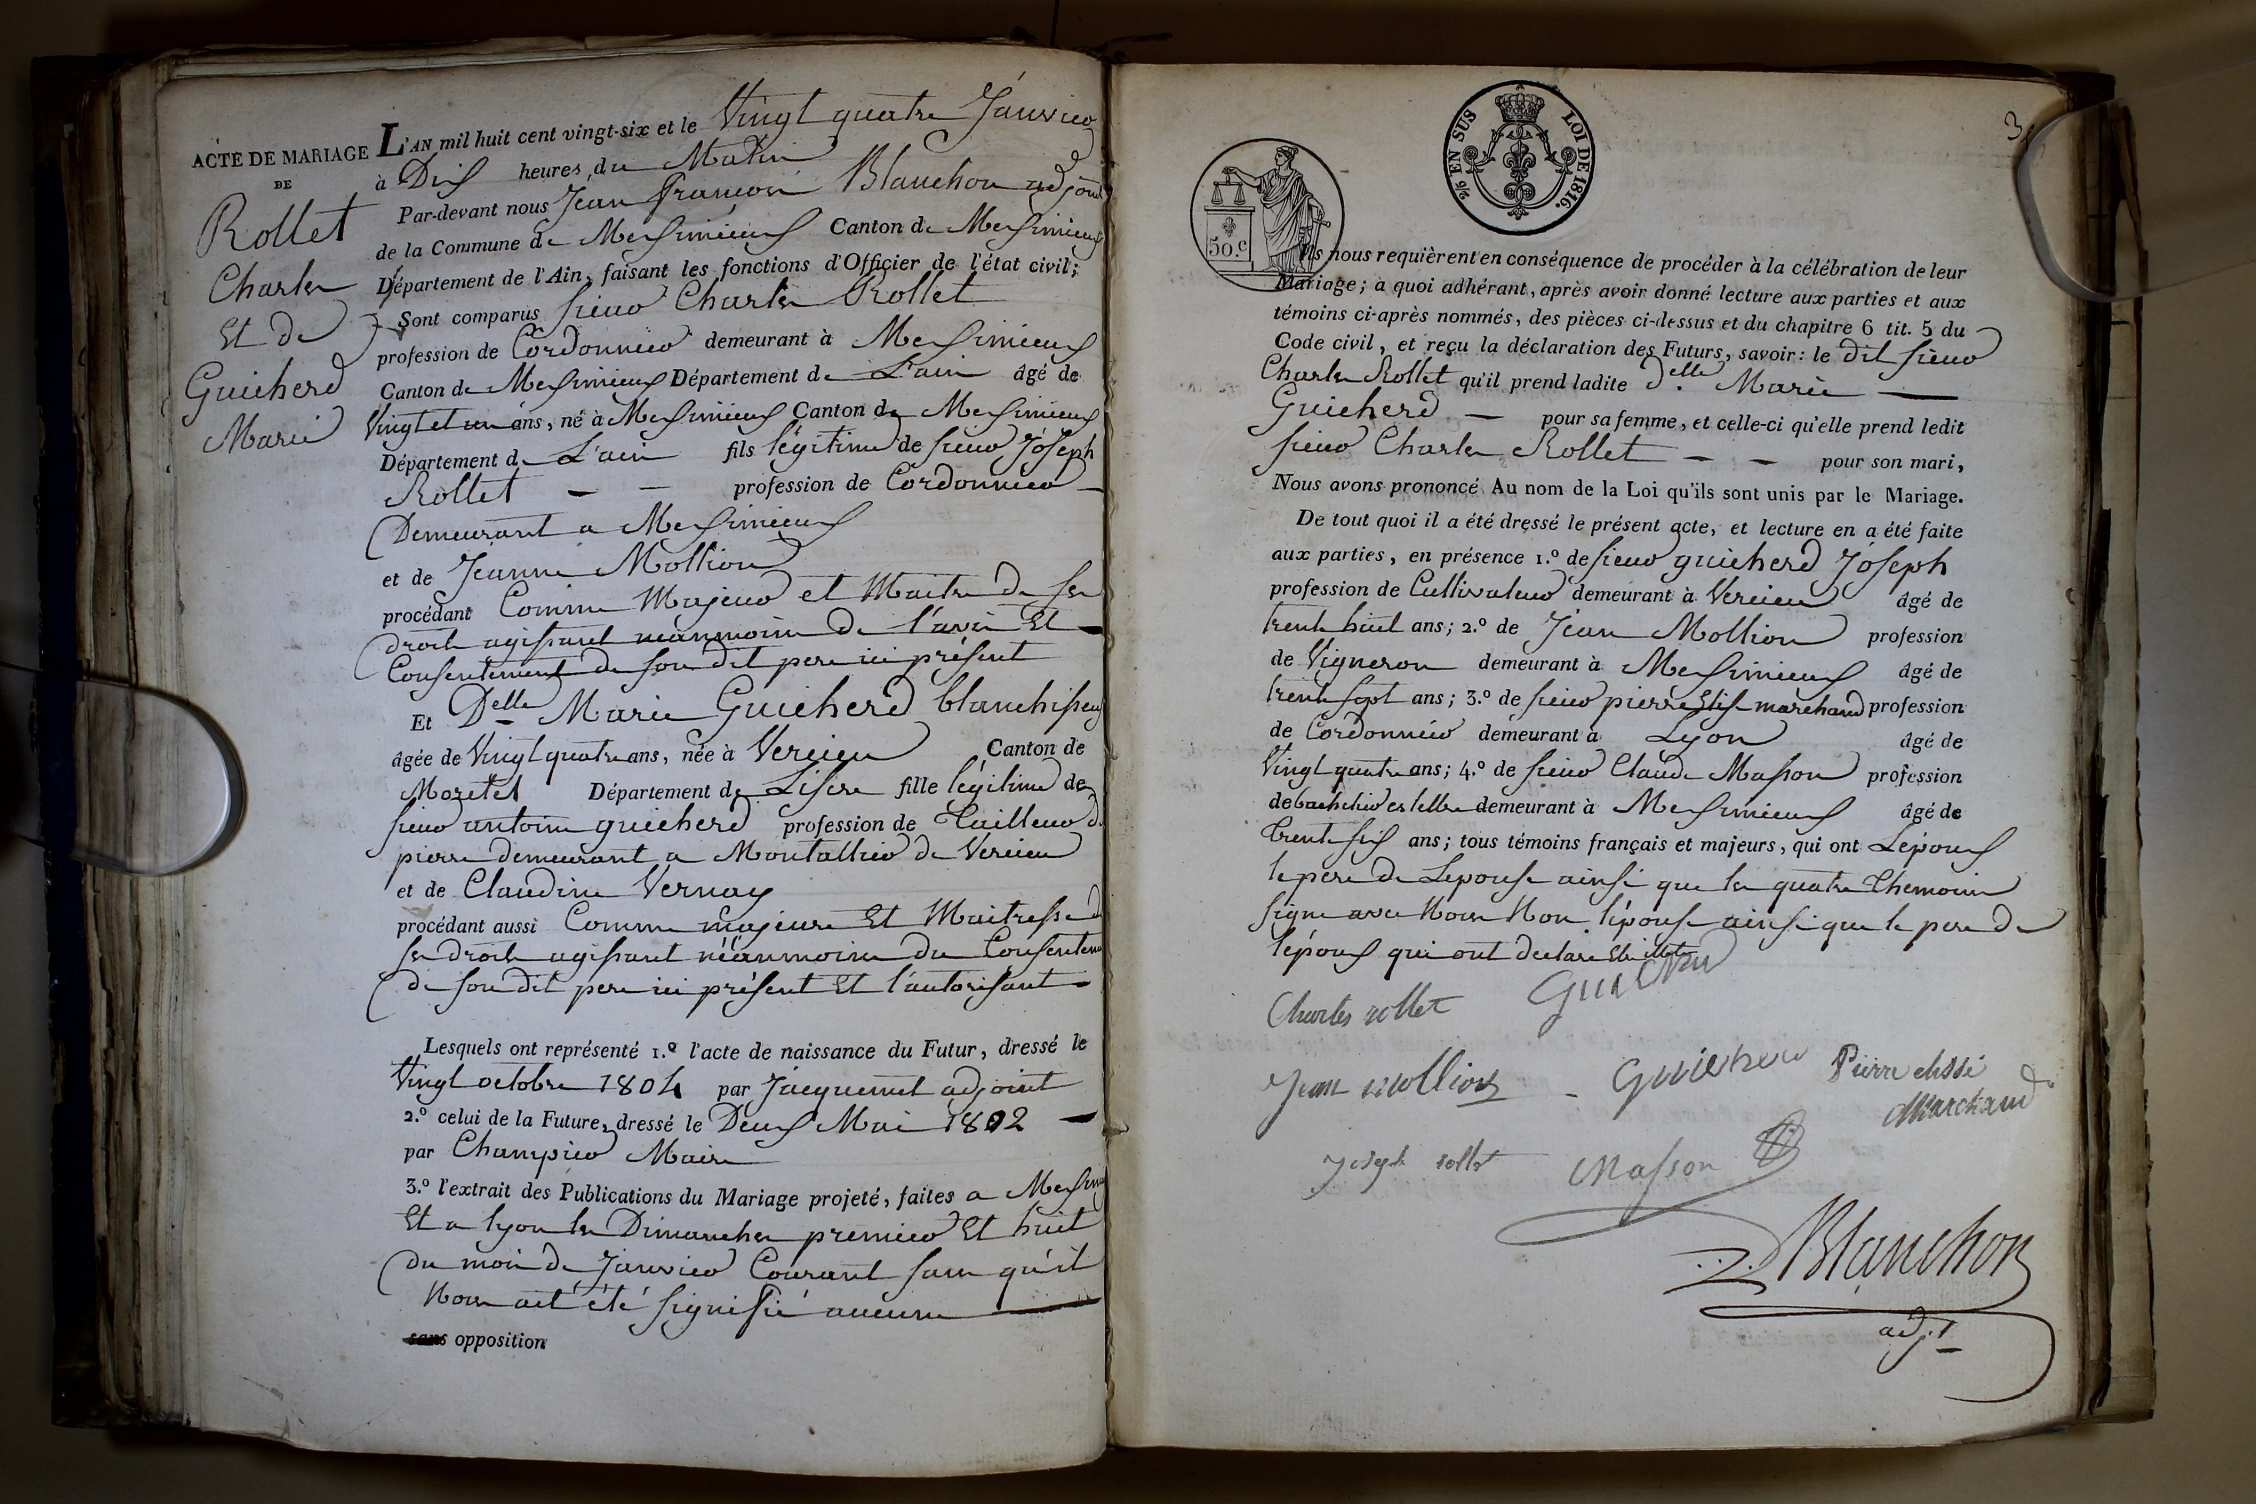 ACTE DE MARIAGE
DE
Rollet
Charles
Et de
Guicherd
Marie
L'AN mil huit cent vingt-six et le Vingt quatre Janvier
à Dix heures du Matin
Par-devant nous Jean françois Blanchon adjoint
de la Commune de Meximieux Canton de Meximieux
Département de l'Ain, faisant les fonctions d'Officier de l'état civil;
Sont comparus sieur Charles Rollet
profession de Cordonnier demeurant à Meximieux
Canton de Meximieux Département de L'ain âgé de
Vingt et un ans, né à Meximieux Canton de Meximieux
Département de L'ain fils légitime de sieur Jóseph
Rollet — — profession de Cordonnier —
Demeurant a Meximieux
et de Jeanne Mollion
procédant Comme Majeur et Maitre de ses
droits agissant néanmoins de l'avis Et —
Consentement de son dit pere ici présent
Et Delle Marie Guicherd blanchisseuse
âgée de Vingt quatre ans, née à Vercieu Canton de
Moretel Département de Lisere fille légitime de
sieur antoine guicherd profession de Tailleur de
pierre demeurant a Montallieu de Vercieu
et de Claudine Vernay
procédant aussi Comme majeure Et Maitresse de
ses droits agissant néanmoins du Consentement
de son dit pere ici présent Et l'autorisant —
Lesquels ont représenté 1.º l'acte de naissance du Futur, dressé le
Vingt octobre 1804 par Jacquemet adjoint
2.º celui de la Future, dressé le Deux Mai 1802 —
par Champier Maire
3.º l'extrait des Publications du Mariage projeté, faites a Meximieux
Et a lyon les Dimanches premier Et huit
du mois de Janvier Courant sans qu'il
Nous ait été signifié aucune —
sans opposition
2/6 EN SUS LOI DE 1816.
50.c
3
Ils nous requièrent en conséquence de procéder à la célébration de leur
Mariage; à quoi adhérant, après avoir donné lecture aux parties et aux
témoins ci-après nommés, des pièces ci-dessus et du chapitre 6 tit. 5 du
Code civil, et reçu la déclaration des Futurs, savoir: le dit sieur
Charles Rollet qu'il prend ladite Delle Marie —
Guicherd — pour sa femme, et celle-ci qu'elle prend ledit
sieur Charles Rollet — — pour son mari,
Nous avons prononcé Au nom de la Loi qu'ils sont unis par le Mariage.
De tout quoi il a été dressé le présent acte, et lecture en a été faite
aux parties, en présence 1.º de sieur guicherd Jóseph
profession de Cultivateur demeurant à Vercieu âgé de
trente huit ans; 2.º de Jean Mollion profession
de Vigneron demeurant à Meximieux âgé de
trente sept ans; 3.º de sieur pierre Elise marchand profession
de Cordonnier demeurant à Lyon âgé de
Vingt quatre ans; 4.º de sieur Claude Masson profession
de bachelier es lettre demeurant à Meximieux âgé de
Trente six ans; tous témoins français et majeurs, qui ont L'époux
le pere de Lepouse ainsi que les quatre Themoins
signe avec Nous Non lépouse ainsi que le pere de
lépoux qui ont declare Etre illetré
Charles rollet
Guicherd
Jean mollion
Guicherd
Pierre elisse
Marchand
Joseph rollet
Masson
Blanchon
adj.t